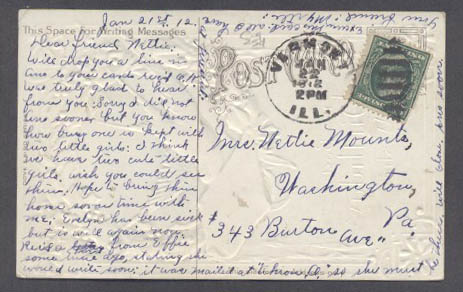 Jan 21st 12.
This Space for Writing Messages
Dear friend Nettie,
Will drop you a line in
ans to your cards rec'd a.k.
was truly glad to hear
from you. Sorry I did not
ans sooner but you know
how busy one is kept with
two little girls. I think
we have two cute little
girls, wish you could see
them. Hope to bring them
home some time with
me; Evelyn has been sick
but is well again now.
Rec'd a from Effie
some time ago, stating she
would write soon; it was mailed at , O." so she must
be there, will close, ans soon,
Your friend, Myrtle.
Excuse this card, its all I have
Post
VERMONT
JAN
22
1912
2PM
ILL.
Mrs. Nettie Mounts,
Washington,
Pa.
#343 Burton Ave"